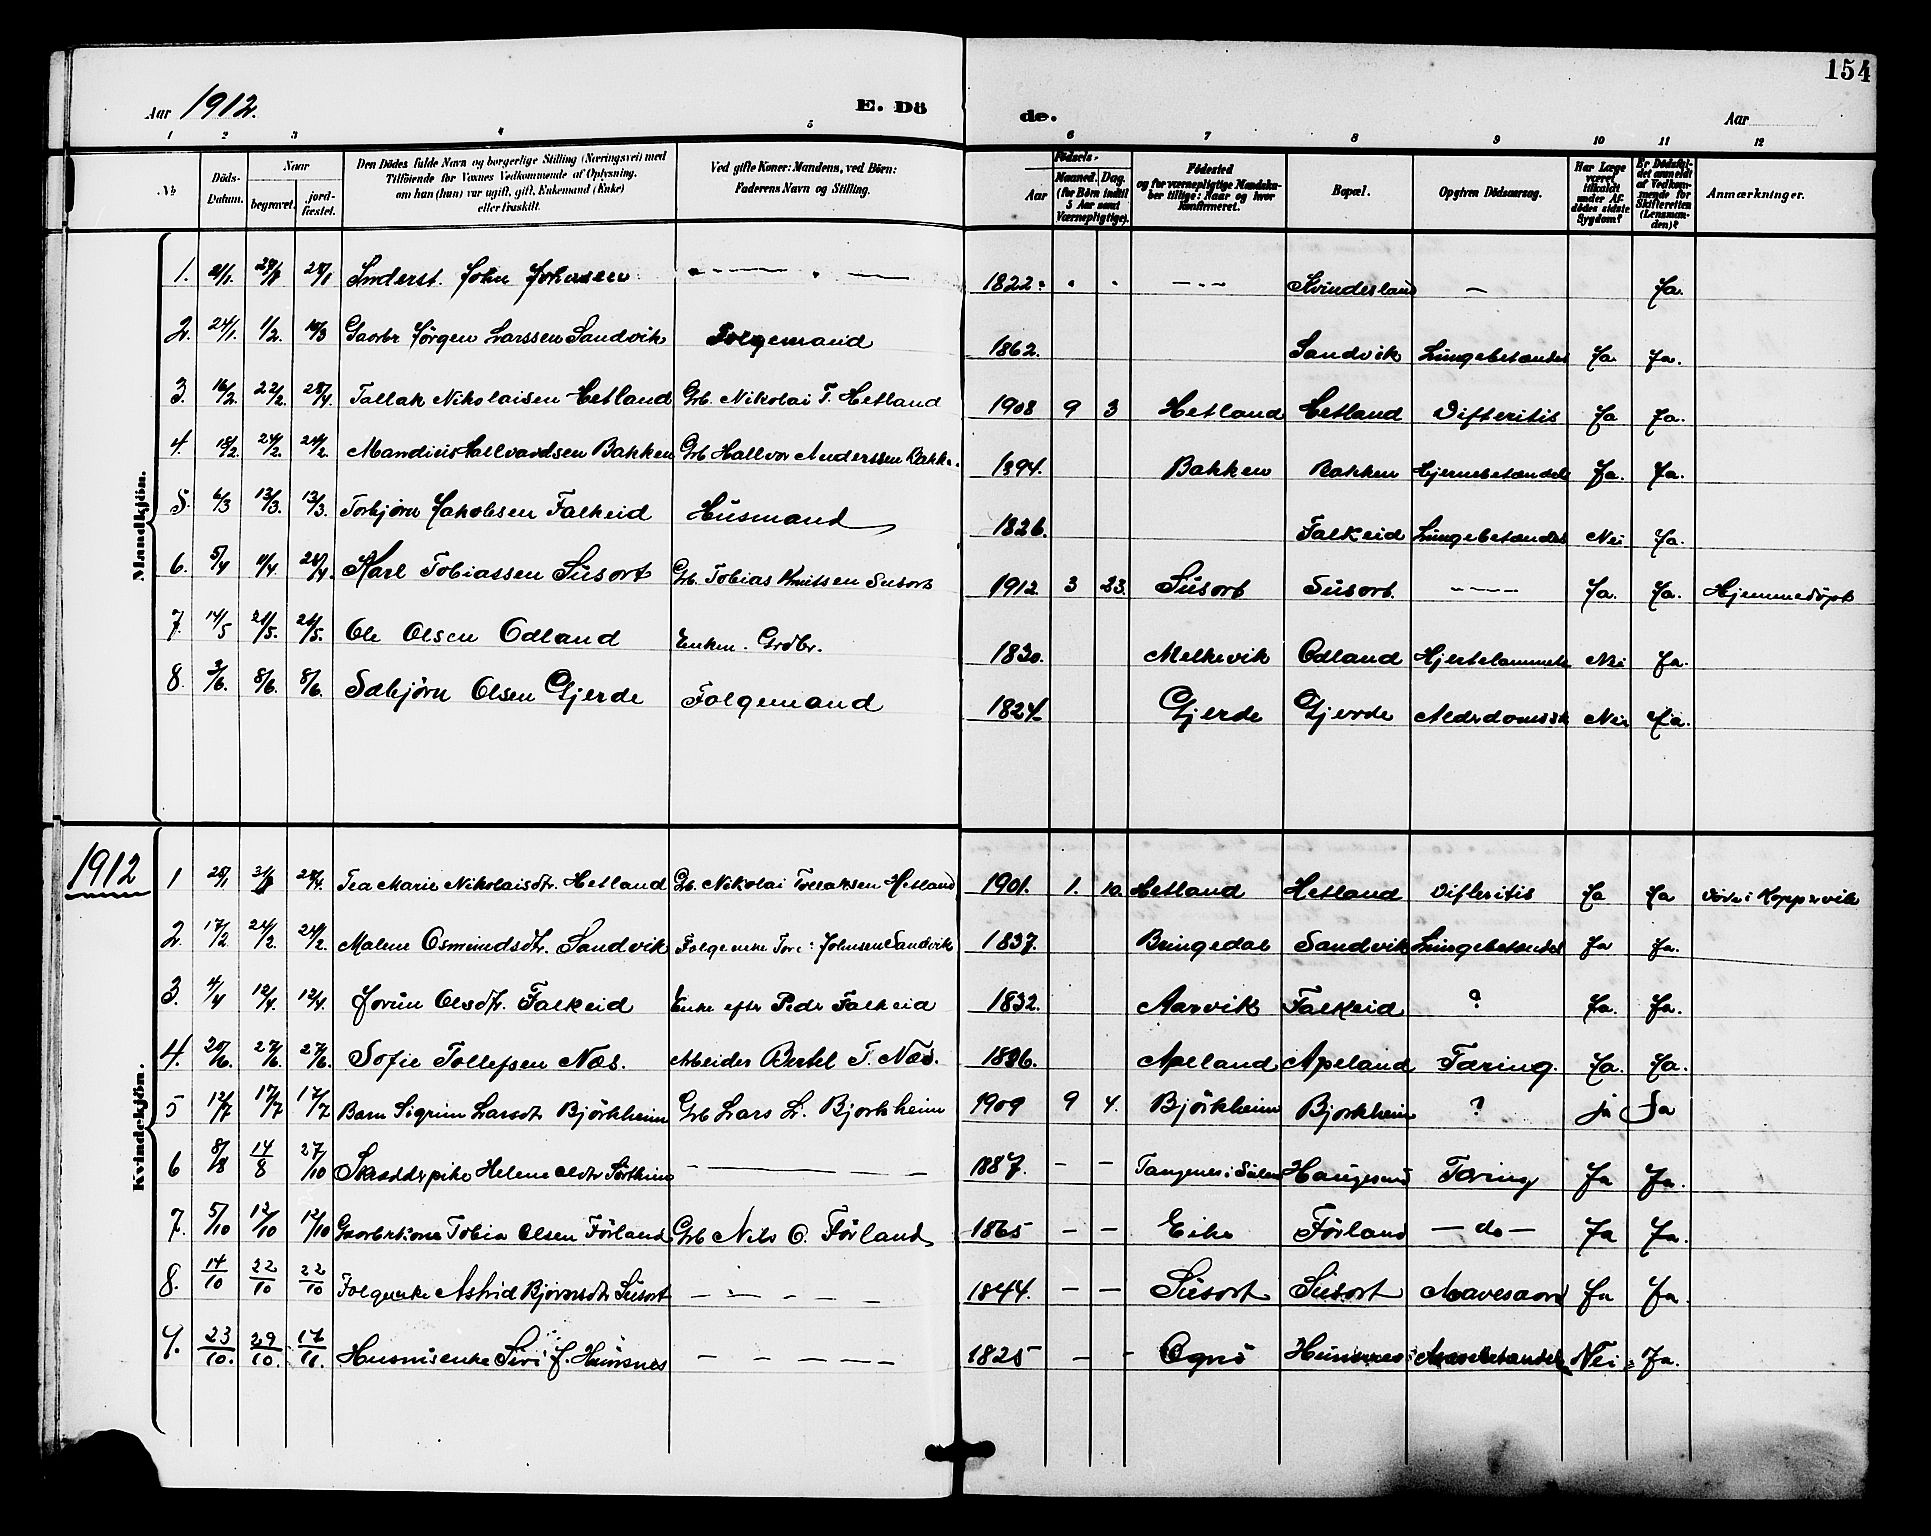 154
Aar 1912. E. Dö de. Aar
1 2 3 4 5 6 7 8 9 10 11 12
No. Döds-Datum. Naar begravet. jord-fæstet. Den Dödes fulde Navn og borgerlige Stilling (Næringsvei) med Tilföiende for Voxnes Vedkommende af Oplysning, om han (hun) var ugift, gift, Enkemand (Enke) eller fraskilt. Ved gifte Koner: Mandens, ved Börn: Faderens Navn og Stilling. Födsels- Aar Maaned. Dag. (for Börn indtil 5 Aar samt Værnepligtige). Födested og for værnepligtige Mandskaber tillige: Naar og hvor konfirmeret. Bopæl. Opgiven Dödsaarsag. Har Læge været tilkaldt under Afdödes sidste Sygdom? Er Dödsfaldet anmeldt af Vedkommende for Skifteretten (Lensmanden)? Anmærkninger.
Mandkjön.
1. 28/1 John Johnsen 1822 Kvindesland — Ja.
2. 24/1. 1/2. 10/3 Gaardbr Jörgen Larssen Sandvik Folgemand 1862. Sandvik Lungebetændel Ja. Ja.
3. 16/2. 22/2. 28/4. Tallak Nikolaisen Hetland Grb. Nikolai T. Hetland 1908 9 3 Hetland Hetland Difteritis Ja Ja.
4. 18/2 24/2. 24/2. Mandius Hallvardsen Bakken Grb Hallvor Anderssen Bakk. 1894. Bakken Bakken Hjernebetændels Ja. Ja.
5. 6/3 13/3. 13/3. Torbjörn Jakobsen Falkeid Husmand 1826. Falkeid Lungebetændel Nei Ja.
6. 5/4 11/4 28/4. Karl Tobiassen Susort Grb. Tobias Knutsen Susort 1912. 3 23. Susort Susort. - - - - Ja. Ja. Hjemmedöpt
7. 14/5 21/5. 21/5. Ole Olsen Odland Enkem. Grdbr. 1830. Melkevik Odland Hjertelammels Nei Ja.
8. 3/6. 8/6. 8/6. Sæbjörn Olsen Gjerde Folgemand 1824. Gjerde Gjerde Alderdomssk Nei Ja.
1912
Kvindekjön.
1 25/1 28/4. Tea Marie Nikolaisdtr. Hetland Grb. Nikolai Tollaksen Hetland 1901. 1. 10. Hetland Hetland Difteritis Ja Ja Döde i Koppervik
2. 17/2 24/2. 24/2. Malene Osmundsdtr. Sandvik Folgeenke Tore Johnsen Sandvik 1837. Bringedal Sandvik Lungebetændel Ja Ja.
3. 4/4 12/4. 12/4. Jorun Olsdtr. Falkeid Enke efter Peder Falkeid 1832. Aarvik Falkeid ? Ja. Ja.
4. 20/6. 27/6. 27/6. Sofie Tollefsen Næs. Arbeider Bertel T. Næs. 1886. Apeland Apeland Tæring. Ja. Ja.
5 12/7 17/7 17/7 Barn Sigrun Larsdtr Björkheim Grb Lars L. Bjorkheim 1909 9 4. Björkheim Bjorkheim ? ja Ja
6 8/8 14/8 27/10 Skrædderpike Helene Olsdtr Sörtheim — — — — 1887. — — Haugesund Tæring Ja Ja.
7. 5/10 12/10 12/10 Gaardbrkone Tobia Olsen Förland Grb Nils O. Förland 1865 — — Eike Förland — do — Ja Ja.
8. 14/10 22/10 22/10 Folgeenke Astrid Björnsdtr Susort — — — — — 1844. — — Susort Susort Mavesaar Ja Ja.
9. 23/10. 29/10. 17/11. Husmsenke Siri J. Hunsnes — — — — — 1825 — - Ognö Hunsnes Nei Ja.